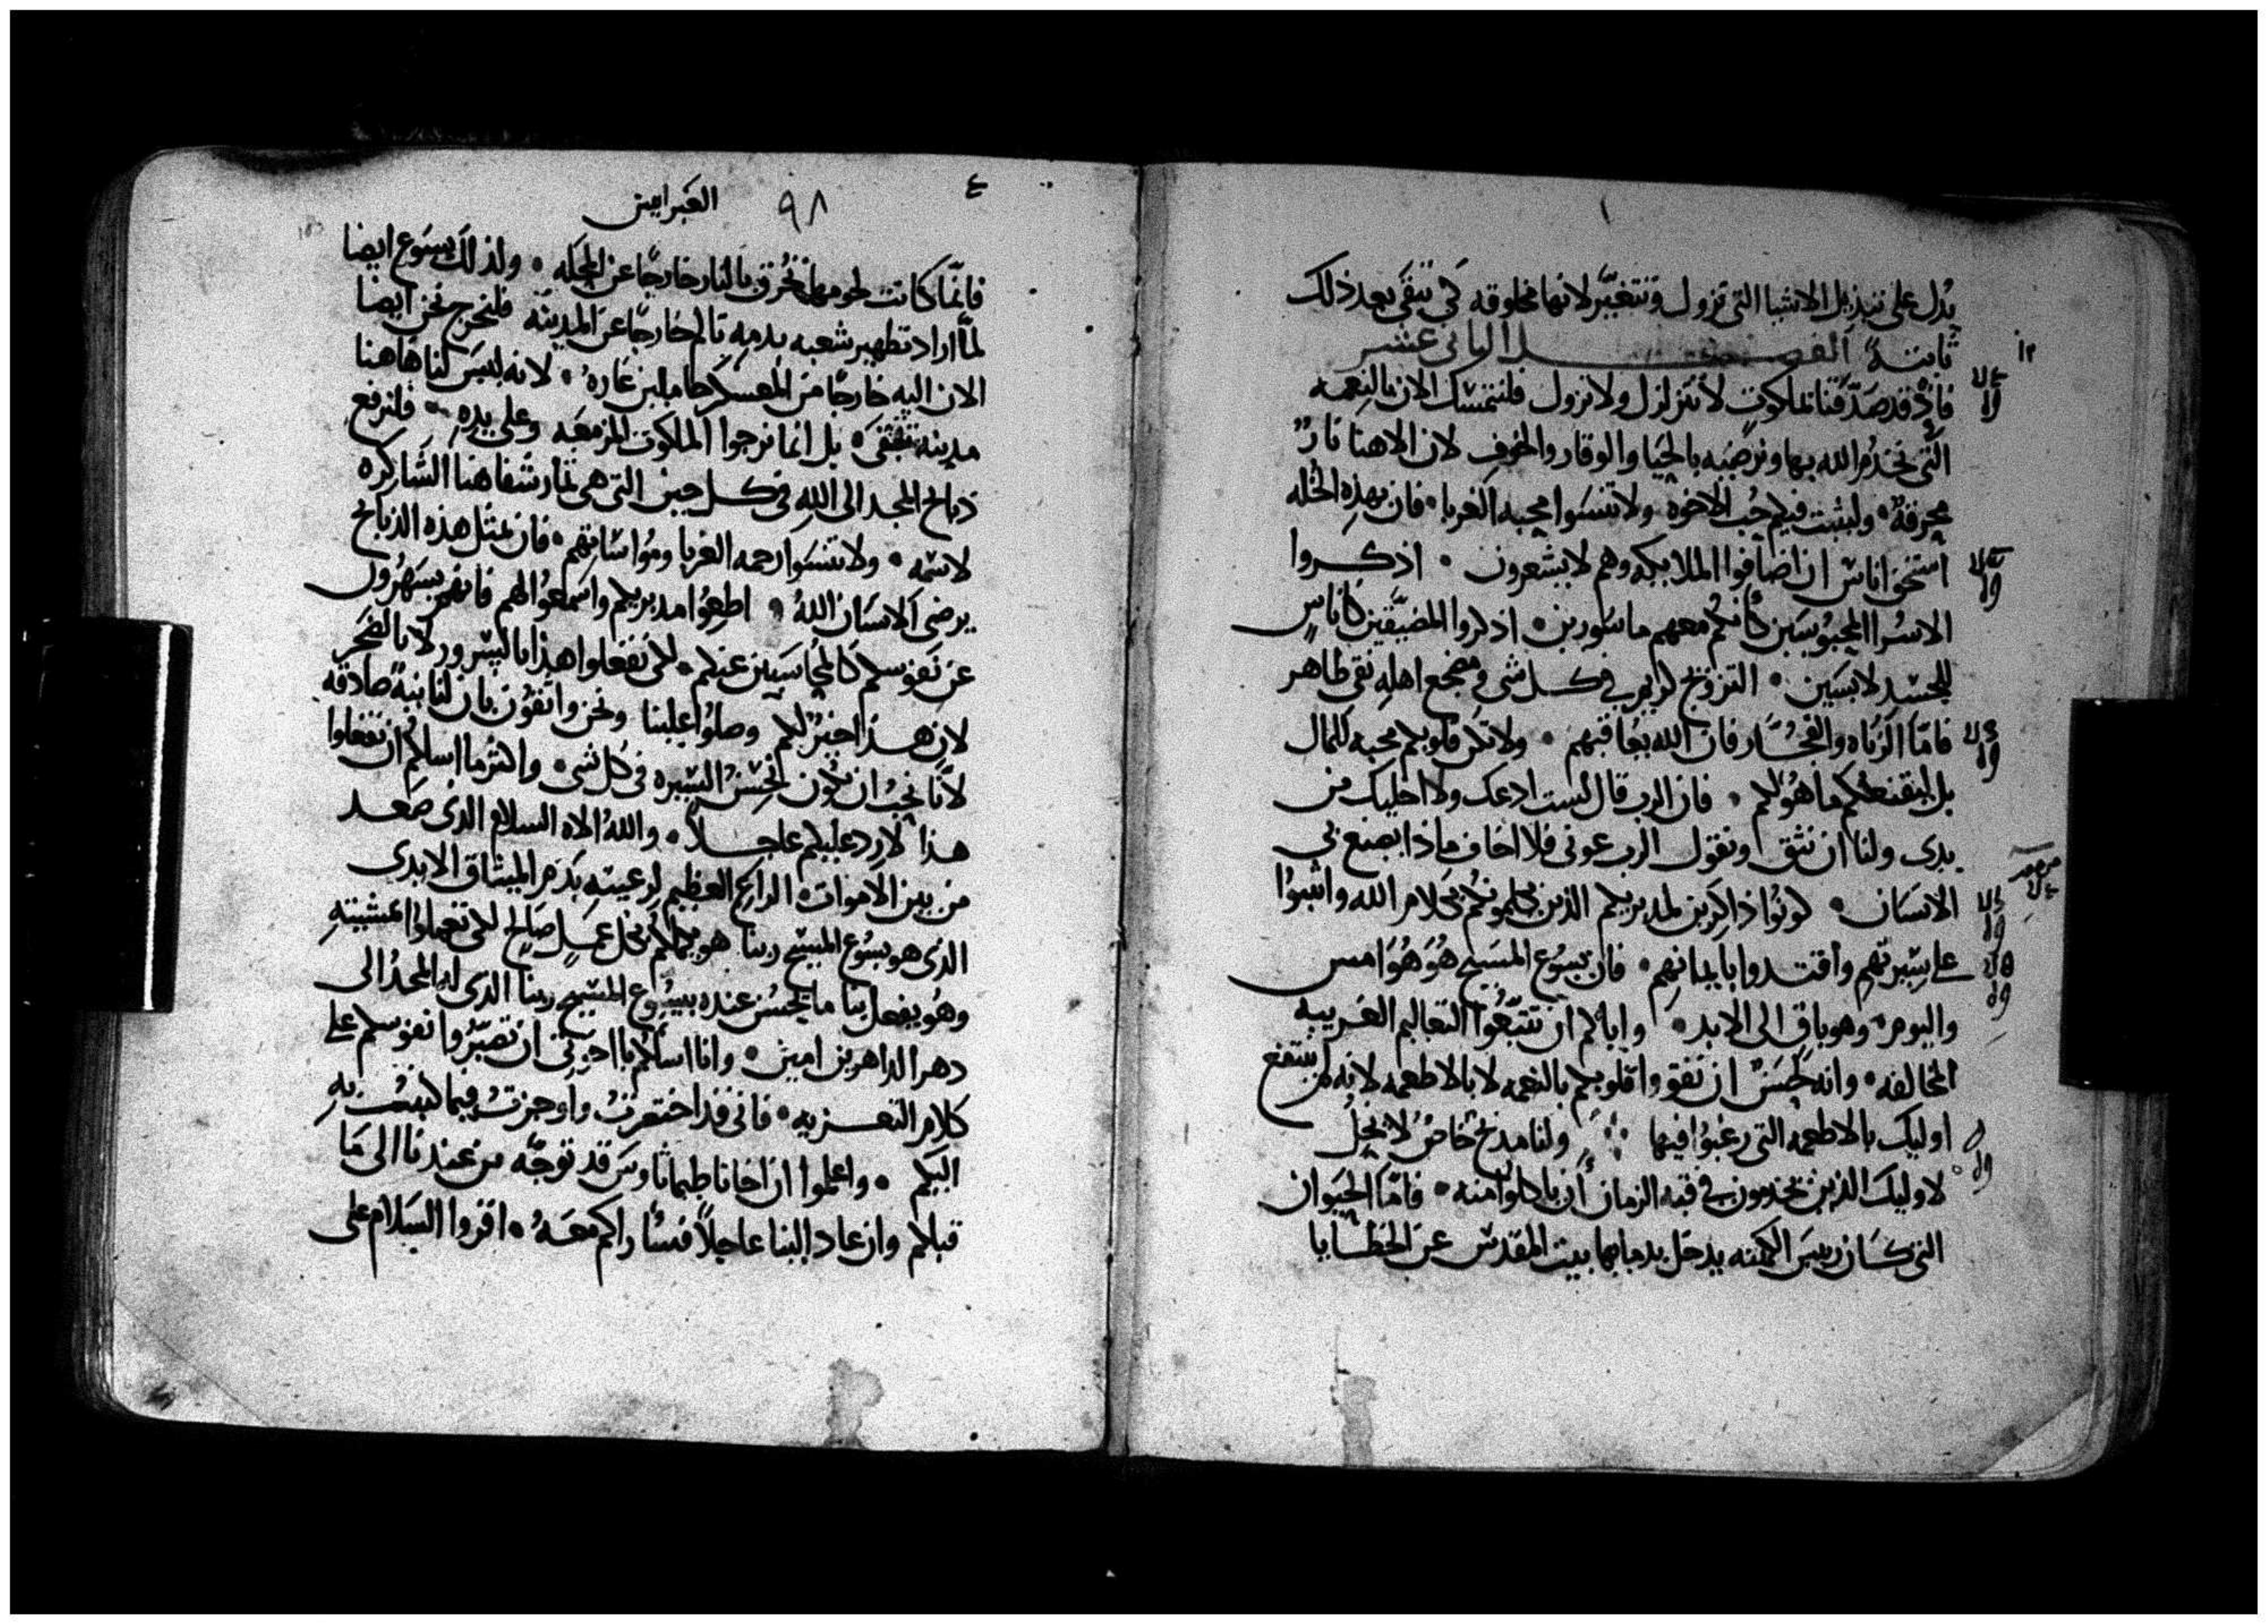 يدل على تبديل الاشيا التى تزول وتتغيّر لانها مخلوقه كى تبقى بعد ذلك
ثابتة الفصل الثانى عشر
فاذ قد صدّقنا بملكوت لا تتزلزل ولا تزول فلنتمسك الان بالنعمه
التى نخدم الله بها ونرضيه بالحيا والوقار والخوف لان الاهنا نارٌ
محرقة ولیثبت فيكم حب الاخوه ولا تنسوا محبه الغربا فان بهذه الخله
استحق اناس ان اضافوا الملايكه وهم لا يشعرون اذكروا
الاسرا المحبوسين كأنكم معهم ماسورين اذكروا المضيّقين كاناسٍ
للجسد لابسين التزويج كريم في كل شى ومضجع اهله نقى طاهر
فامّا الزناه والفجّار فان الله يعاقبهم ولا تكن قلوبكم محبه للمال
بل ليقنعكم ما هو لكم فان الرب قال لست ادعك ولا اخليك من
يدى ولنا ان نثق ونقول الرب عونى فلا اخاف ماذا يصنع بى
الانسان كونوا ذاكرين لمدبريكم الذين كلموكم بكلام الله واثبتوا
على سيرتهم واقتدوا بايمانهم فان يسوع المسيح هو هو امس
واليوم وهو باق الى الابد واياكم ان تتبعوا التعاليم الغريبه
المخالفه وانه لحسن ان تقووا قلوبكم بالنعمه لا بالاطعمه لانه لم ينتفع
اوليك بالاطعمه التى رغبوا فيها ولنا مذبح خاص لا يحل
لاوليك الذين يخدمون في قبه الزمان أن ياكلوا منه فامّا الحيوان
التى كان رييس الكهنه يدخل بدمايها بيت المقدس عن الخطايا
٩٨ العبرانيين
فانّما كانت لحومها تحُرق بالنار خارجًا عن المحله ولذلك يسوع ايضا
لمّا اراد تطهير شعبه بدمه تالم خارجًا عن المدينه فلنخرج نحن ايضا
الان اليه خارجًا من المعسكر حاملين عاره لانه ليس لنا هاهنا
مدينه تبقى بل انما نرجوا الملكوت المزمعه وعلى يده فلنرفع
ذبايح المجد الى الله فى كل حين التى هى ثمار شفاهنا الشاكره
لاسمه ولا تنسوا رحمه الغربا ومواساتهم فان بمثل هذه الذبايح
يرضى الانسان اللهُ اطيعوا مدبريكم واسمعوا لهم فانهم يسهرون
عن نفوسكم كالمحاسبين عنكم لكى تفعلوا هذا بالسرور لا بالضجر
لان هذا خيرٌ لكم وصلوا علينا ونحن واثقون بان لنا نيةً صادقه
لانّا نحب ان نكون نحسن السيره فى كل شى واكثر ما اسلكم ان تفعلوا
هذا لارد عليكم عاجلاً والله الاه السلام الذى صعد
من بين الاموات الراعى العظيم لرعيته بدم الميثاق الابدى
الذى هو يسوع المسيح ربنا هو يكملكم بكل عمل صالح لكى تعملوا مشيته
وهو يفعل بنا ما يحسن عنده بيسوع المسيح ربنا الذى له المجد الى
دهر الداهرين امين وانا اسالكم يا اخوتى ان تصبّروا نفوسكم على
كلام التعزيه فانى قد اختصرت واوجزت فيما كتبت به
اليكم واعلموا ان اخانا طيماثاوس قد توجّه من عندنا الى ما
قبلكم وان عاد الينا عاجلاً فسأراكم معه اقروا السلام على